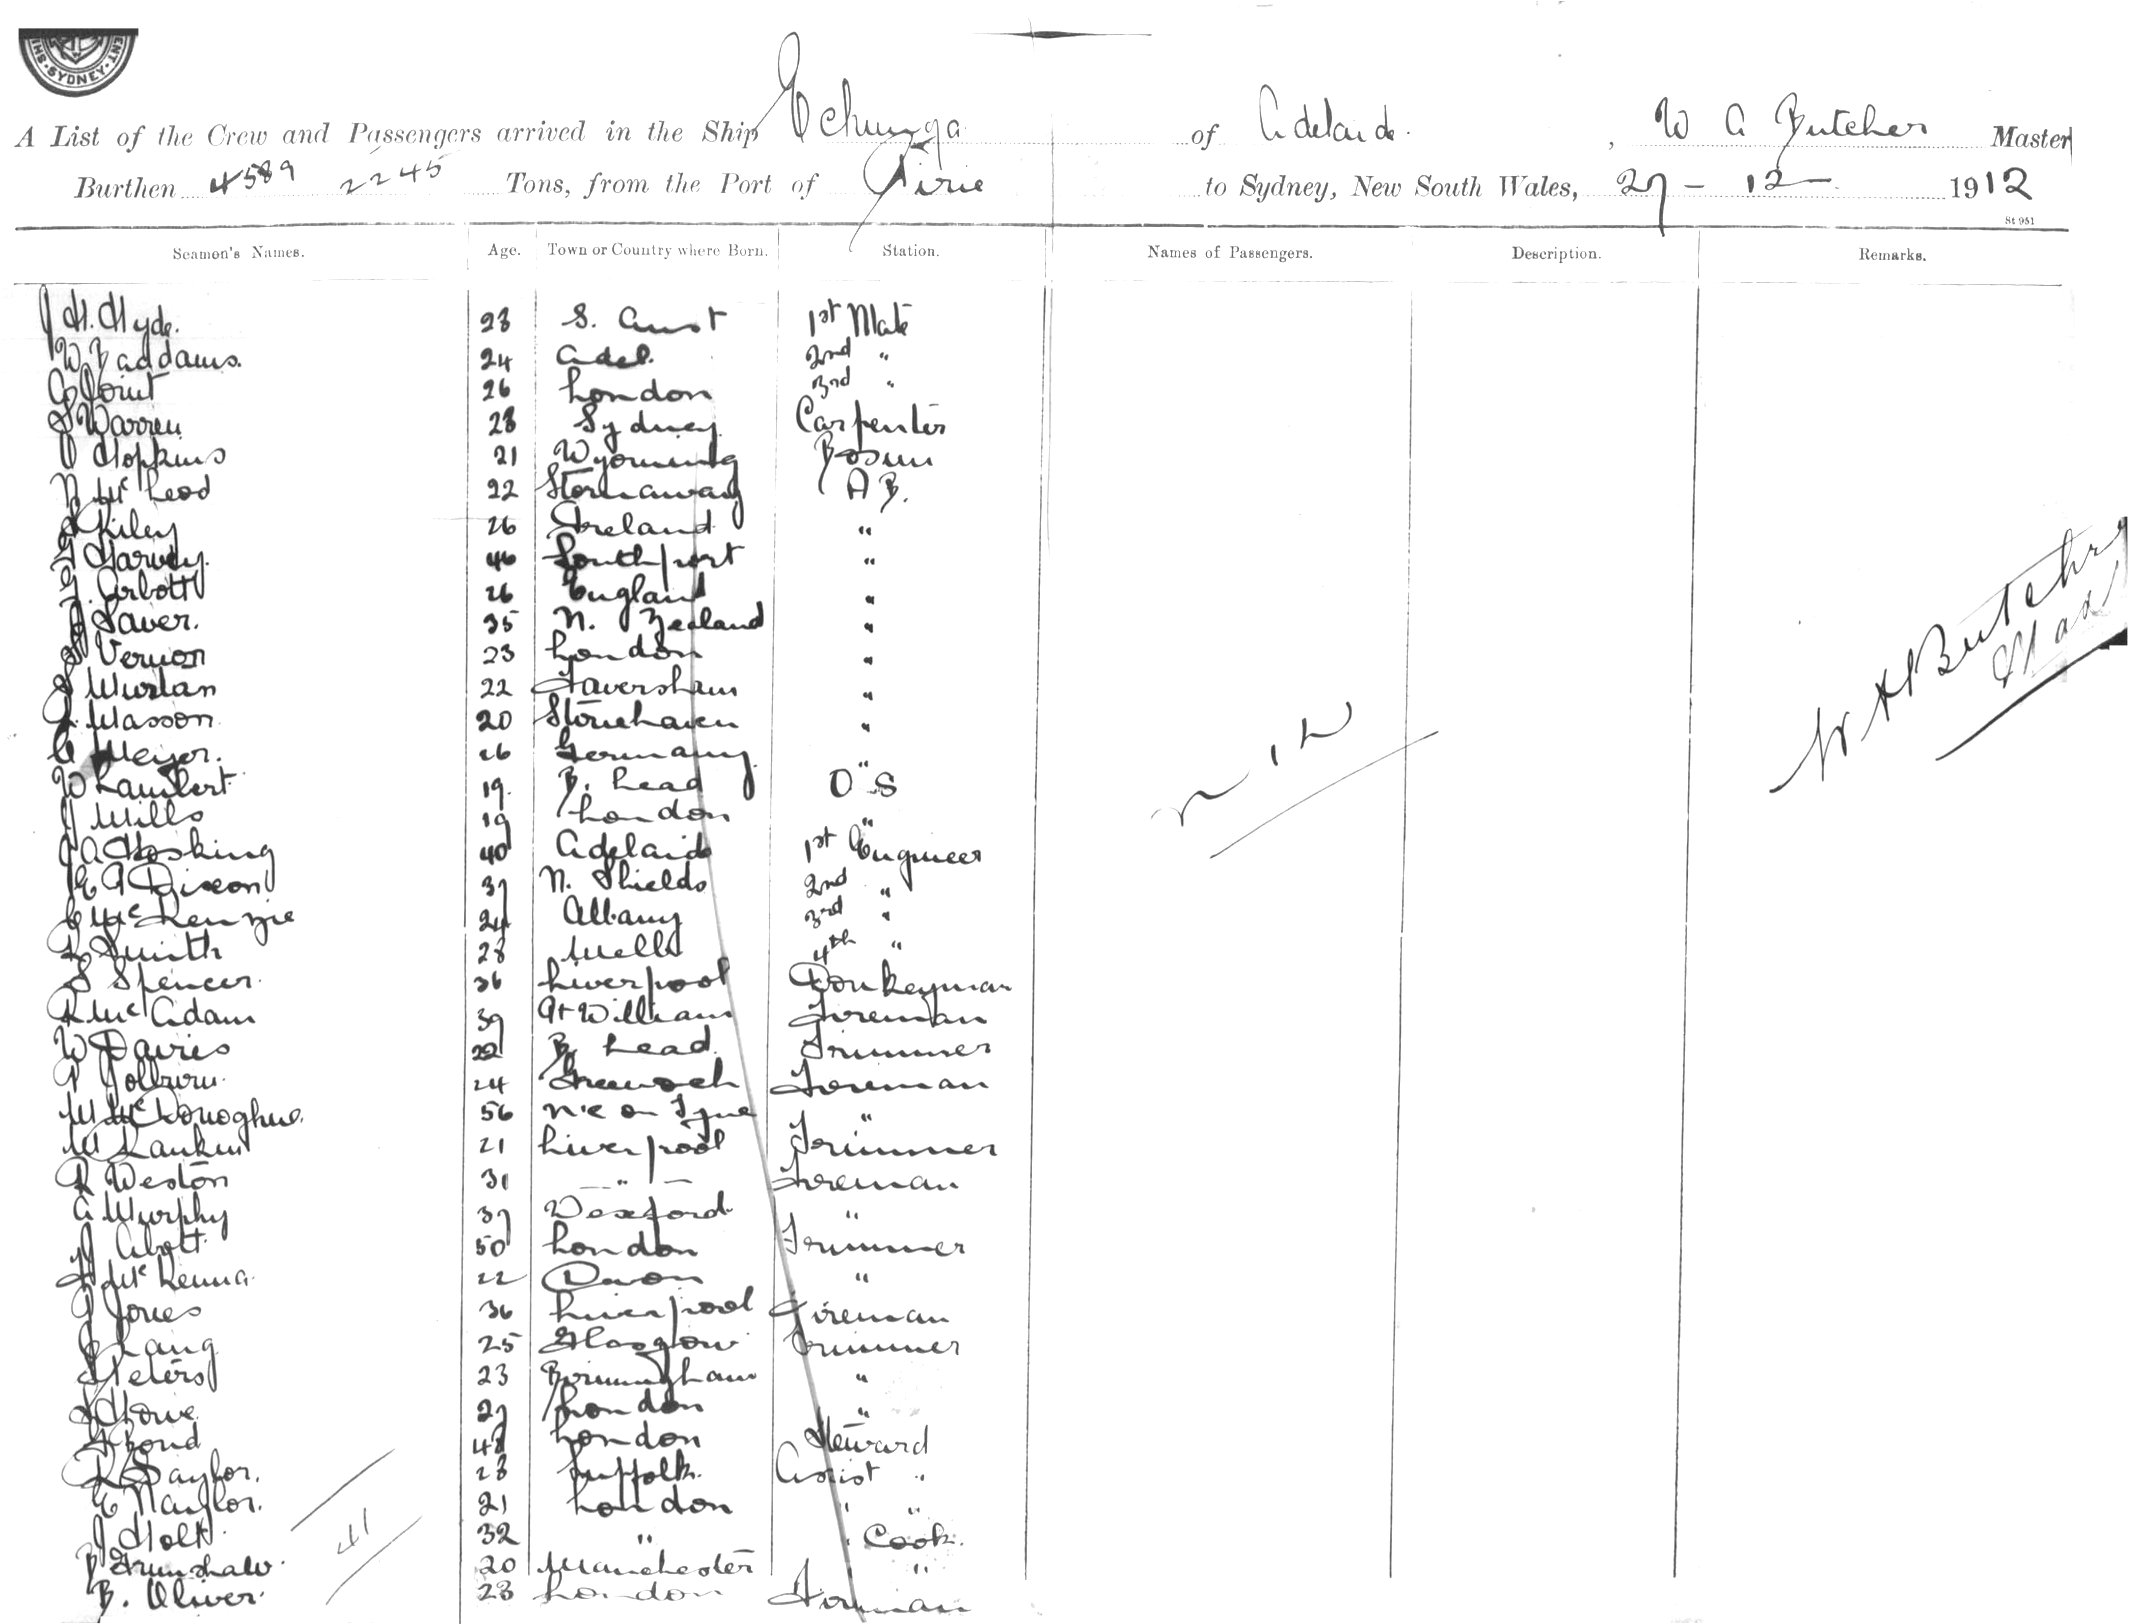 SYDNEY
A List of the Crew and Passengers arrived in the Ship Echunga of Adelaide. , W A Butcher Master
Burthen 4589 2245 Tons, from the Port of Pirie to Sydney, New South Wales, 27 - 12 - 1912
St 951
Seamen's Names. Age. Town or Country where Born. Station. Names of Passengers. Description. Remarks.
J H. Hyde. 28 S. Aust 1st Mate
W. Baddams. 24 Adel. 2nd "
26 London 3rd "
S Warren 28 Sydney Carpenter
J Hopkins 21 Wyoming Bosun
N McLeod 22 Stornaway A B.
Kiley 26 Ireland "
G Harvey. 46 Southport "
G. Arbott 26 England "
J Saver. 35 N. Zealand "
S Vernon 23 London "
22 Faversham "
Masson 20 Stonehaven "
Meyer. 26 Germany. "
W Lambert 19. B. Head O S
J Mills 19 London "
J A Hosking 40 Adelaide 1st Engineer
E A Dixon 37 N. Shields 2nd "
C McKenzie 24 Albany 3rd "
R Smith 28 Wells 4th "
S Spencer. 36 Liverpool Donkeyman
R McAdam 39 Pt William Fireman
W Davies 22 B. Head Trimmer
24 Greenock Fireman
M McDonoghue. 56 N'c on Tyne "
M Rankin 21 Liverpool Trimmer
R Weston 31 — " — Fireman
A Murphy 37 Wexford "
J Abott 50 London Trimmer
McKenna. 22 Devon "
J Jones 36 Liverpool Fireman
C Lang 25 Glasgow Trimmer
Peters 23 Birmingham "
Howe 27 London "
Bond 48 London Steward
R Saylor. 28 Suffolk. Assist "
E Naylor. 21 London " "
J Holt 32 " Cook.
Grunshaw. 20 Manchester "
B. Oliver. 23 London Fireman
41
nil
W A Butcher